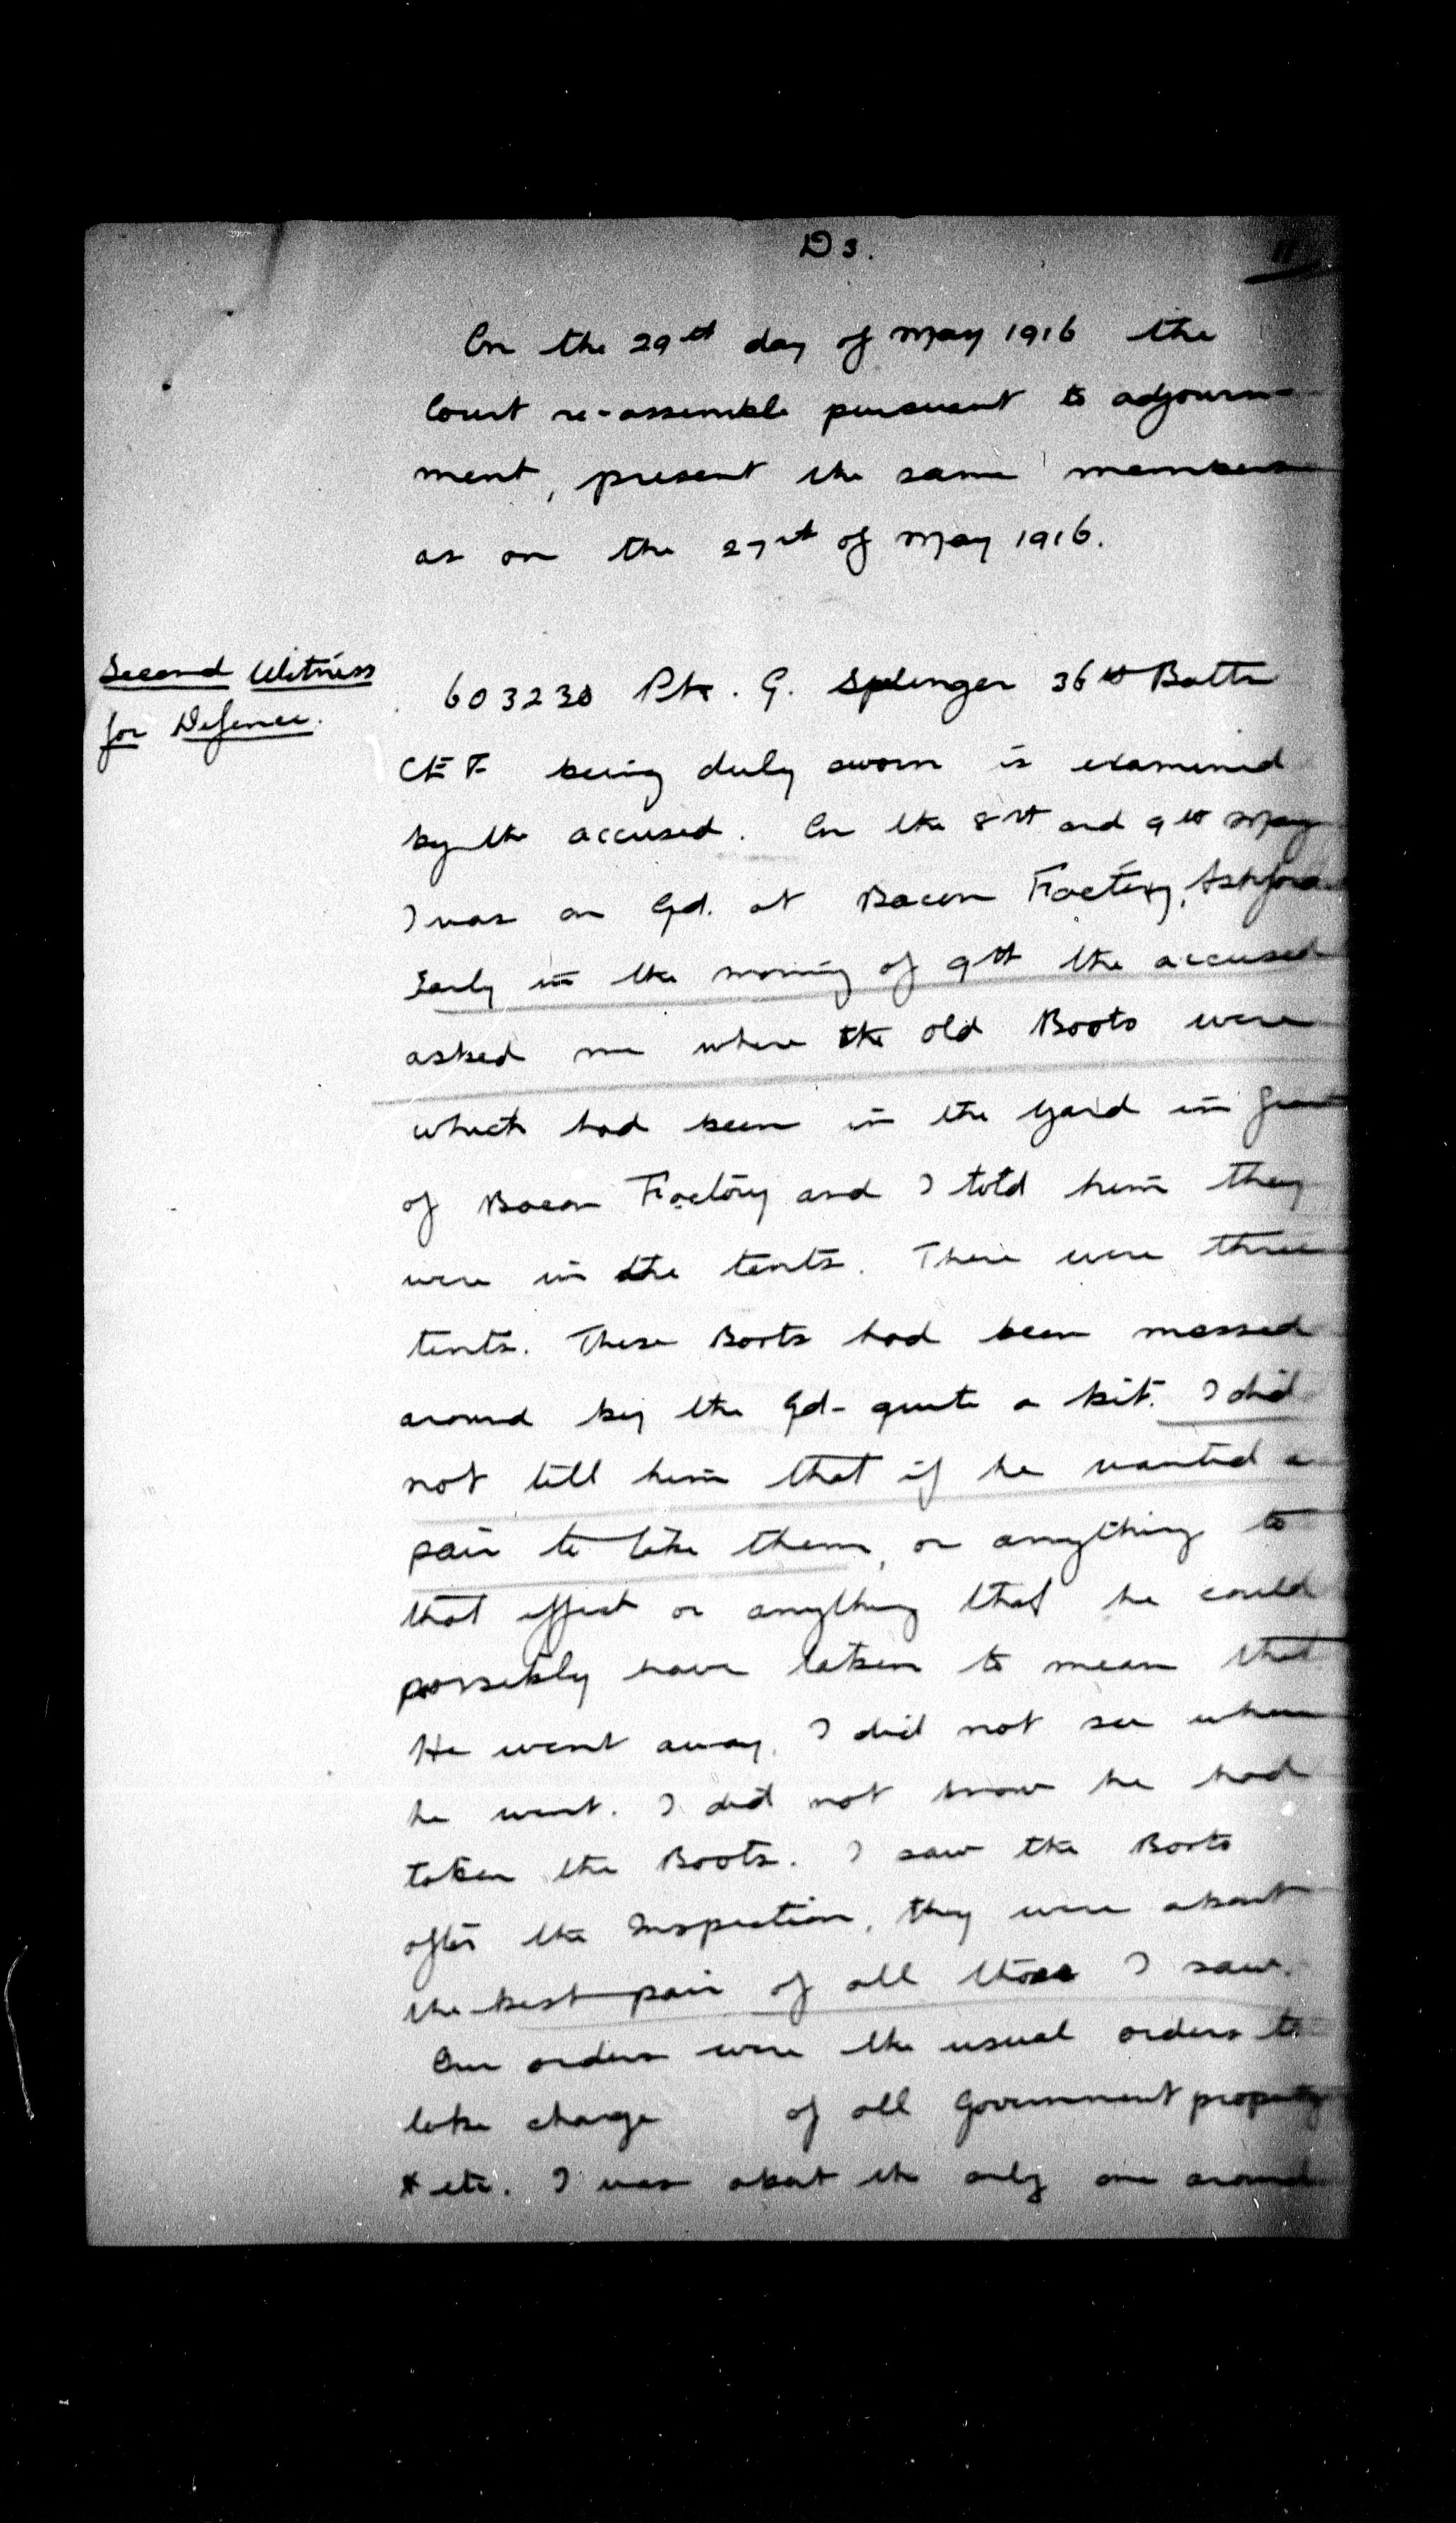 D 3.
11
On the 29th day of May 1916 the
Court re-assemble pursuant to adjourn-
ment, present the same members
as on the 27th of May 1916.
Second Witness
for Defence.
603230 Pte. G. Splenger 36th Battn
CEF being duly sworn is examined
by the accused. On the 8th and 9th May
I was on Gd. at Bacon Factory, Ashford
Early in the morning of 9th the accused
asked me where the old Boots were
which had been in the yard in front
of Bacon Factory and I told him they
were in the tents. There were three
tents. These Boots had been messed
around by the Gd - quite a bit. I did
not tell him that if he wanted a
pair to take them, or anything to
that effect or anything that he could
possibly have taken to mean that
He went away, I did not see where
he went. I did not know he had
taken the Boots. I saw the Boots
after the Inspection, they were about
the best pair of all those I saw.
Our orders were the usual orders to
take charge of all Government property
& etc. I was about the only one around